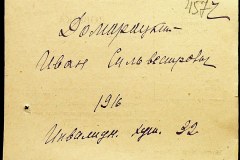 4572
Домарацкий
Иван Сильвестрович
1916
Инвалидн. 22